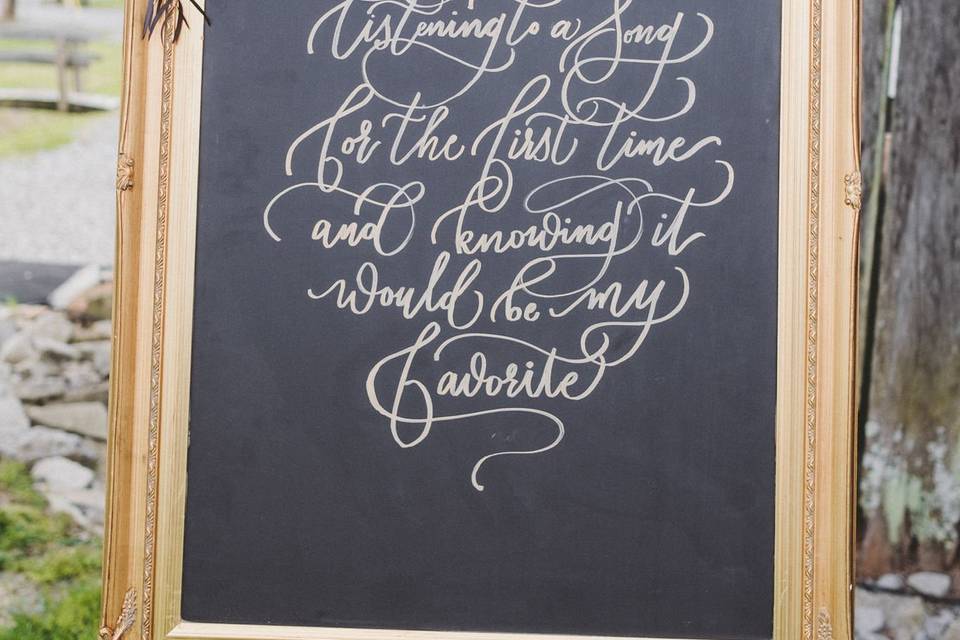 Listening to a Song
for the first time
and knowing it
would be my
favorite